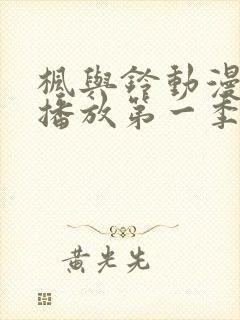 楓與鈴動漫
播放第一季
黃光先